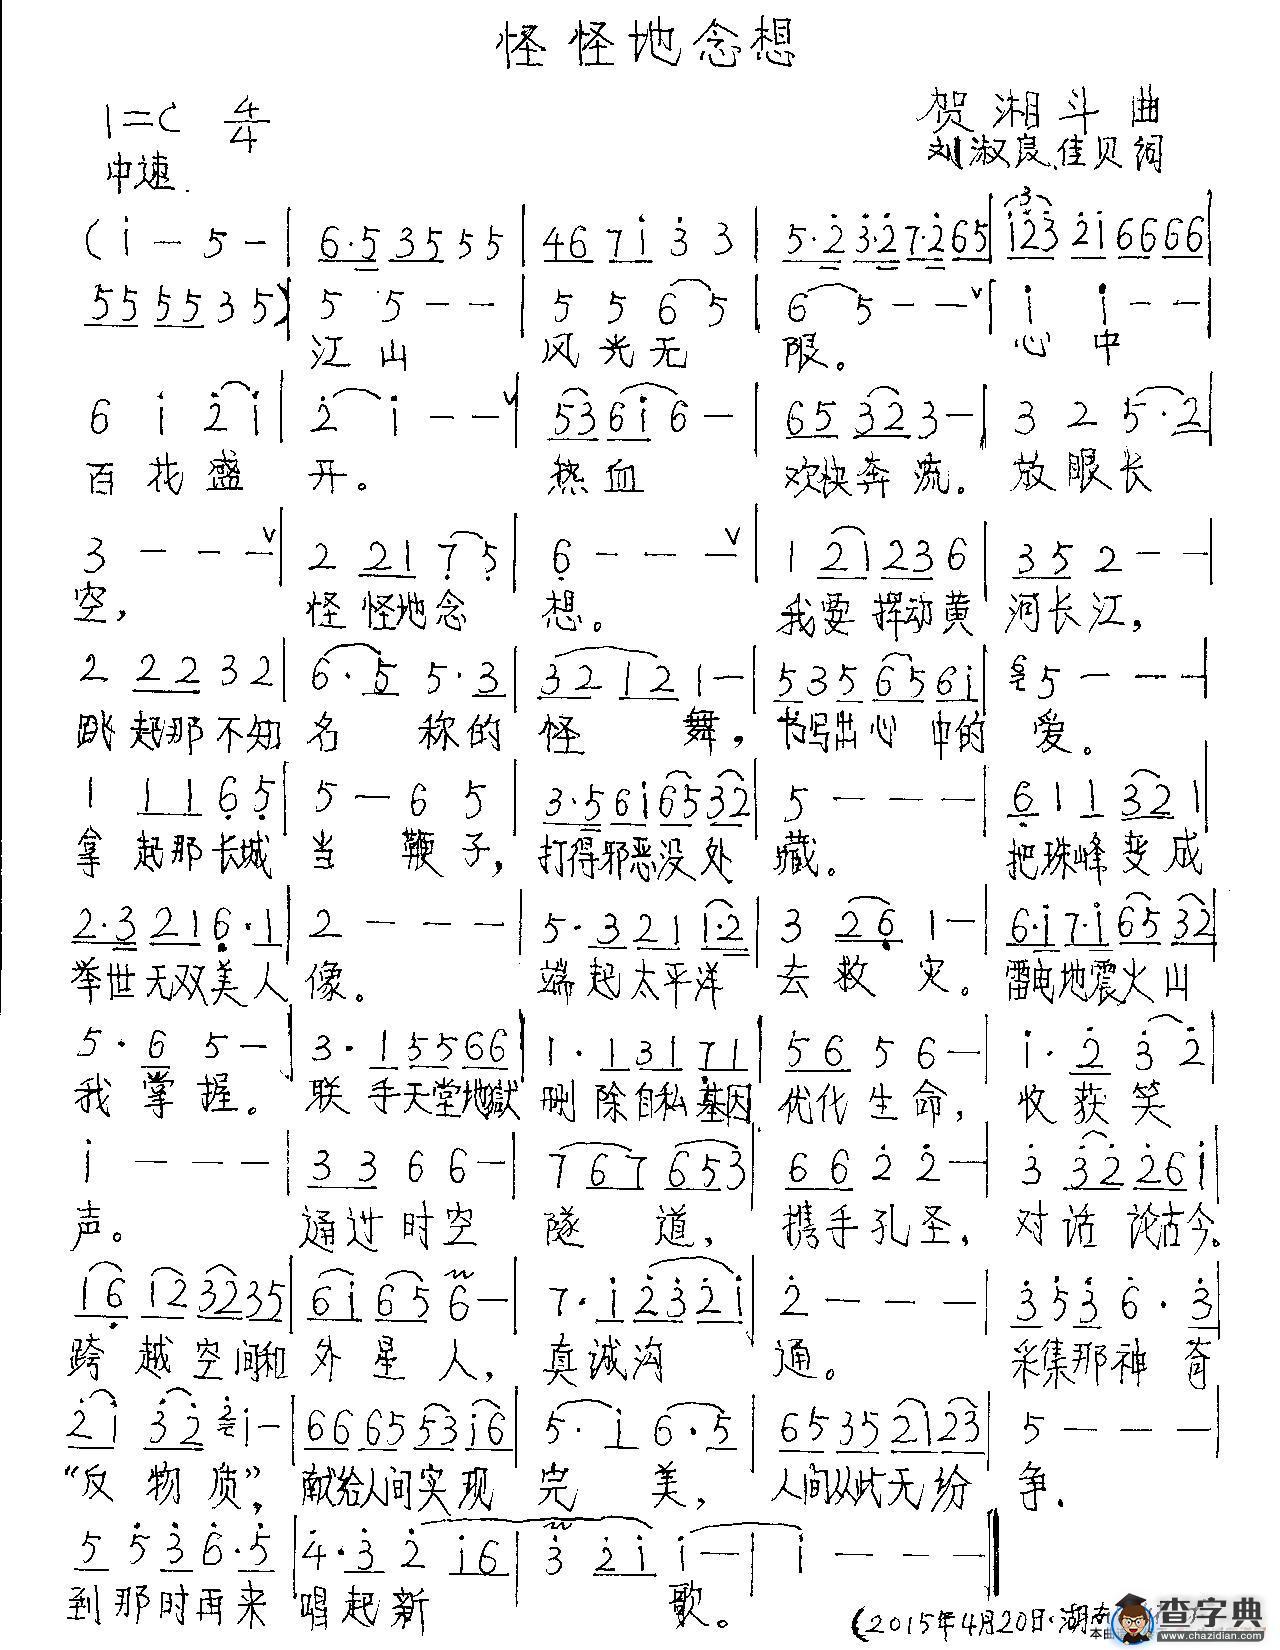 怪怪地念想
1=C 4/4
贺湘斗 曲
中速.
刘淑良、佳贝 词
(i - 5 - | 6·5 35 5 5 | 46 7i 3 3 | 5·2 3·2 7·2 65 | i23 2i 66 66 |
55 55 3 5) | 5 5 - - | 5 5 6 5 | 6 5 - - ∨ | i i - - |
江山 风光无 限。 心中
6 i 2 i | 2 i - - ∨ | 53 6i 6 - | 65 32 3 - | 3 2 5·2 |
百花盛 开。 热血 欢快奔流。 放眼长
3 - - - ∨ | 2 21 7 5 | 6 - - - ∨ | 1 21 23 6 | 35 2 - - |
空, 怪怪地念 想。 我要挥动黄 河长江,
2 22 3 2 | 6·5 5·3 | 32 12 1 - | 535 65 6i | 5 - - - |
跳起那不知 名称的 怪舞, 书写出心中的 爱。
1 11 65 | 5 - 6 5 | 3·5 6i 65 32 | 5 - - - | 61 1 32 1 |
拿起那长城 当鞭子, 打得邪恶没处 藏。 把珠峰变成
2·3 21 6·1 | 2 - - - | 5·3 21 1·2 | 3 26 1 - | 6·i 7·i 65 32 |
举世无双美人 像。 端起太平洋 去救灾。 雷电地震火山
5·6 5 - | 3·1 55 66 | 1·1 31 71 | 56 5 6 - | i·2 3 2 |
我掌握。 联手天堂地獄 删除自私基因 优化生命, 收获笑
i - - - | 33 6 6 - | 7 67 653 | 66 2 2 - | 3 32 26 i |
声。 通过时空 隧道, 携手孔圣, 对话论古今。
16 12 32 35 | 6i 65 6 - | 7·i 23 2i | 2 - - - | 35 3 6·3 |
跨越空间和 外星人, 真诚沟 通。 采集那神奇
2i 32 i - | 66 65 53 i6 | 5·i 6·5 | 65 35 21 23 | 5 - - - |
“反物质”, 献给人间实现 完美, 人间从此无纷 争.
5 53 6·5 | 4·3 2 i6 | 3 2i i - | i - - - ‖
到那时再来 唱起新 歌。
(2015年4月20日·湖南
查字典
www.chazidian.com